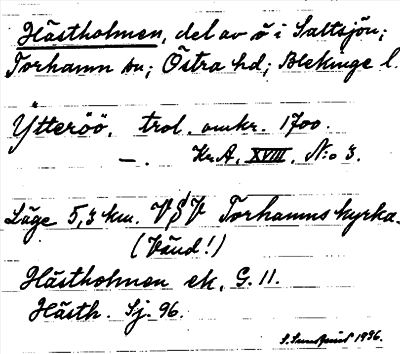 Hästholmen, del av ö i Saltsjön;
Torhamn sn; Östra hd; Blekinge l.
Ytteröö, trol. omkr. 1700.
—. Kr.A, XVIII, N:o 3.
Läge 5,3 km. VSV Torhamns kyrka.
(Vänd!)
Hästholmen ek, G. 11.
Hästh. Sj. 96.
S. Sundqvist 1936.